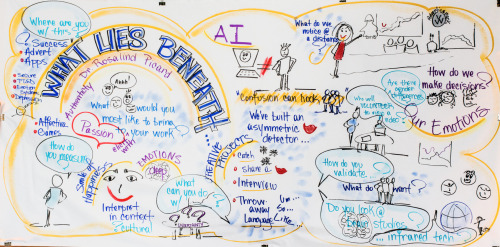 Where are you
w/ this?
Success
Advert
Apps
Secure
Affective
Games
WHAT LIES BENEATH
Dr Rosalind Picard
Ahhh!
What would you
most like to bring
to your work
Passion
How do you
measure
Smile
Happiness
EMOTIONS
Interpret
in context
Cultural
What
can you do
w/
AI
"Confusion can Rock"
We've built an
asymmetric
detector...
PROJECTS
Catch
Share a
Interview
Throw
away
Language
Um...
So...
Like...
What do we
notice @
a distance
Who will
VOLUNTEER
Are there
gender
differences
How do we
make decisions?
Our Emotions
How do you
validate
What do want?
Do you look @
brain studies
... infrared tech